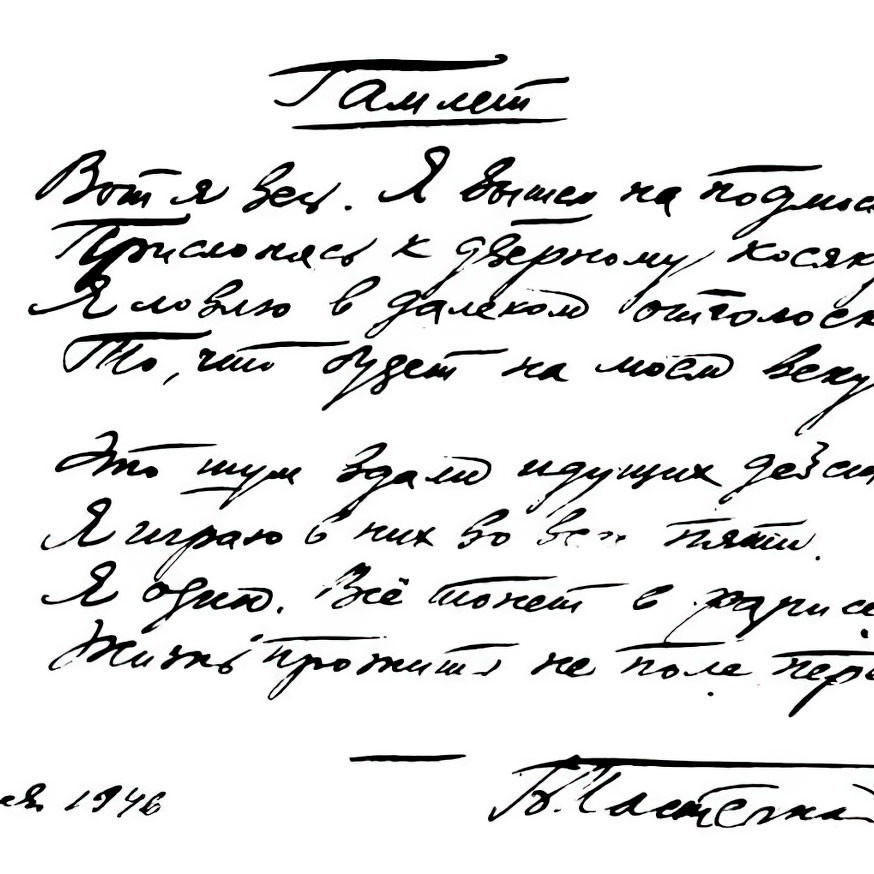 Гамлет
Вот я весь. Я вышел на подмос
Прислонясь к дверному косяк
Я ловлю в далеком отголоск
То, что будет на моем веку
Это шум вдали идущих дейст
Я играю в них во всех пяти.
Я один. Всё тонет в фарисе
Жизнь прожить не поле пере
я 1946
Б. Пастерна